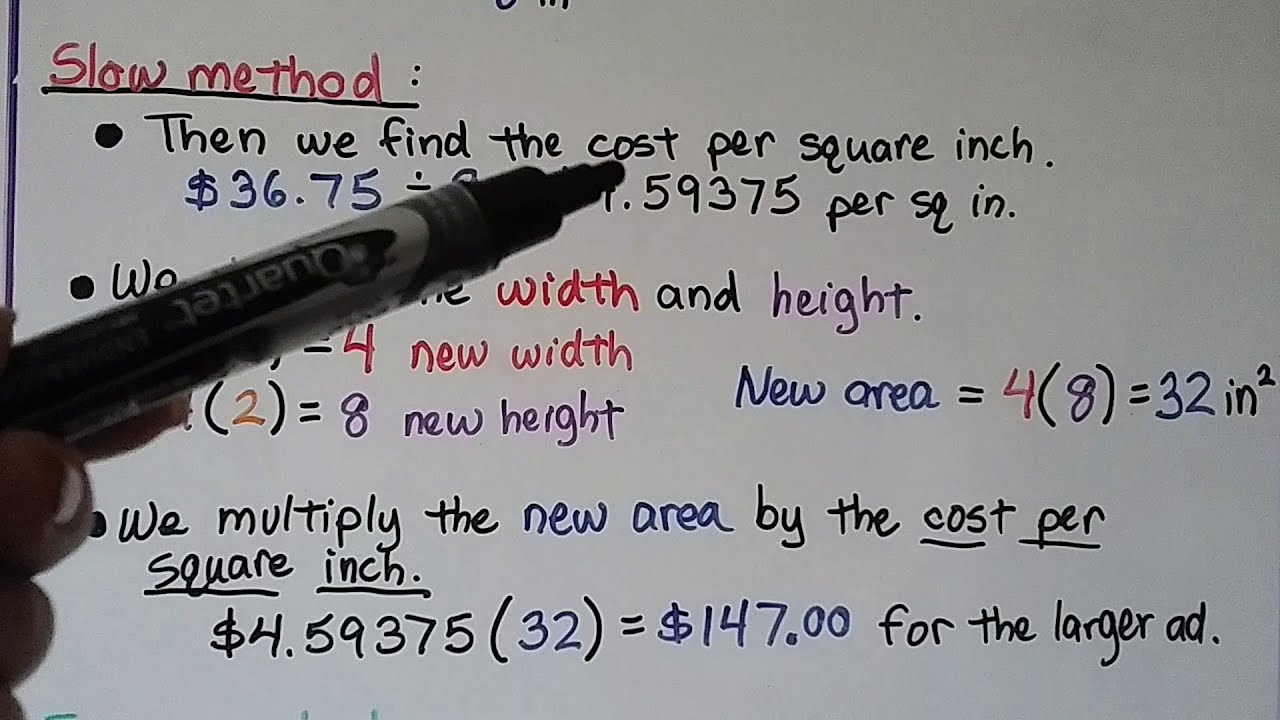 Slow method :
• Then we find the cost per square inch.
$36.75 ÷ .59375 per sq in.
• We width and height.
= 4 new width
(2) = 8 new height
New area = 4(8) = 32 in²
• We multiply the new area by the cost per
square inch.
$4.59375(32) = $147.00 for the larger ad.
Quartet